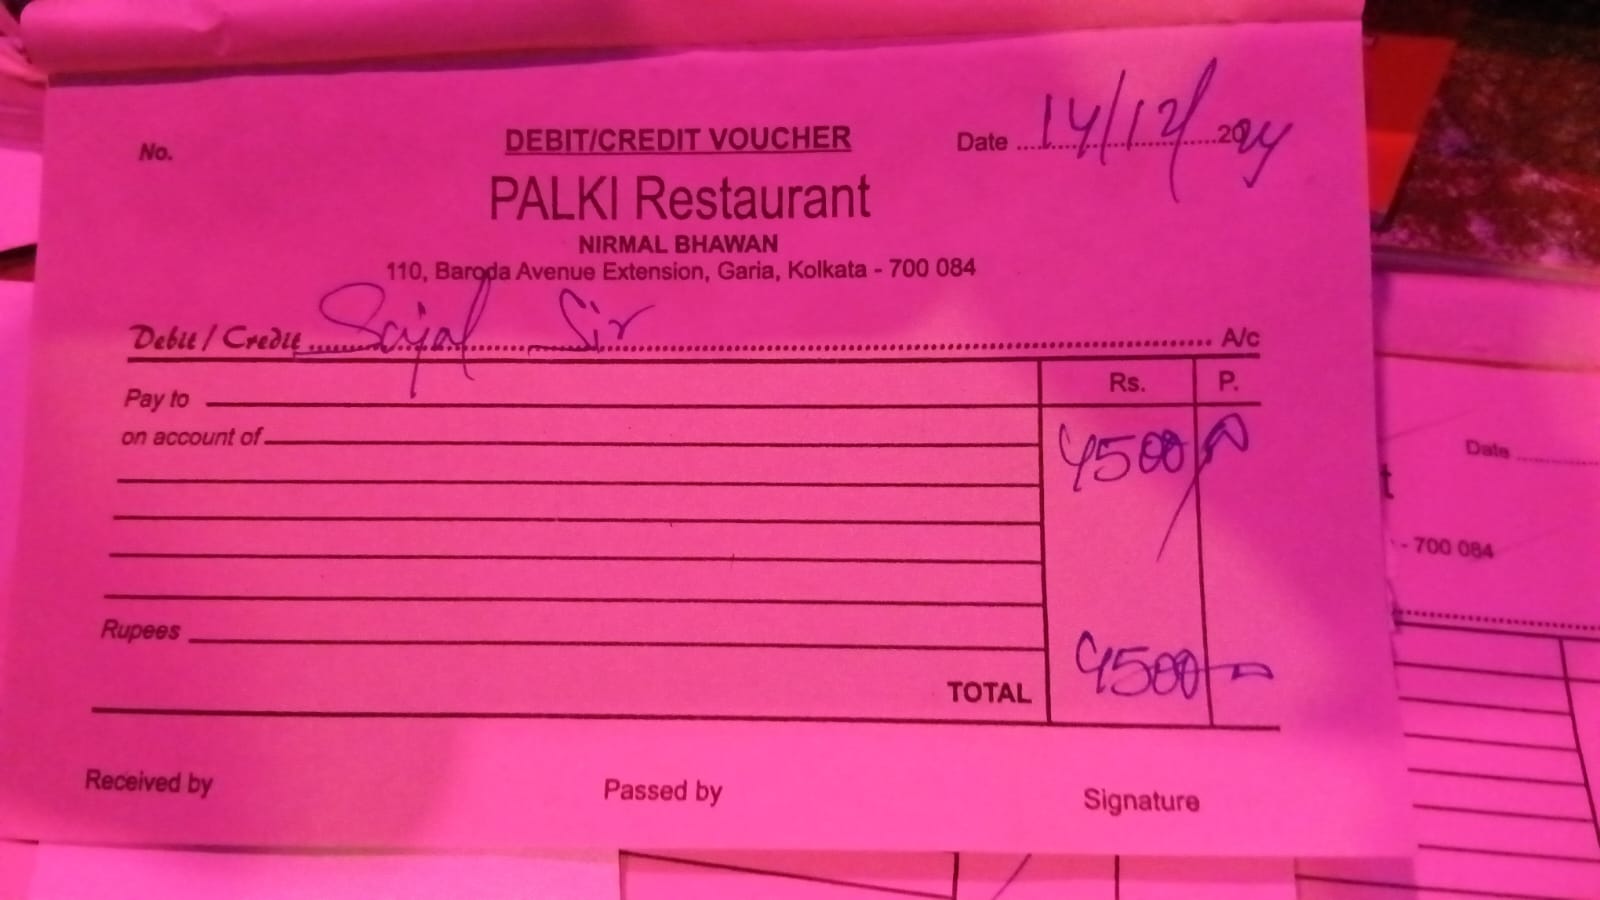 No.
DEBIT/CREDIT VOUCHER
Date 14/12/2024
PALKI Restaurant
NIRMAL BHAWAN
110, Baroda Avenue Extension, Garia, Kolkata - 700 084
Debit / Credit Sajal Sir A/c
Rs. P.
Pay to
on account of 4500/-
Rupees
TOTAL 4500/-
Received by Passed by Signature
Date
t
- 700 084